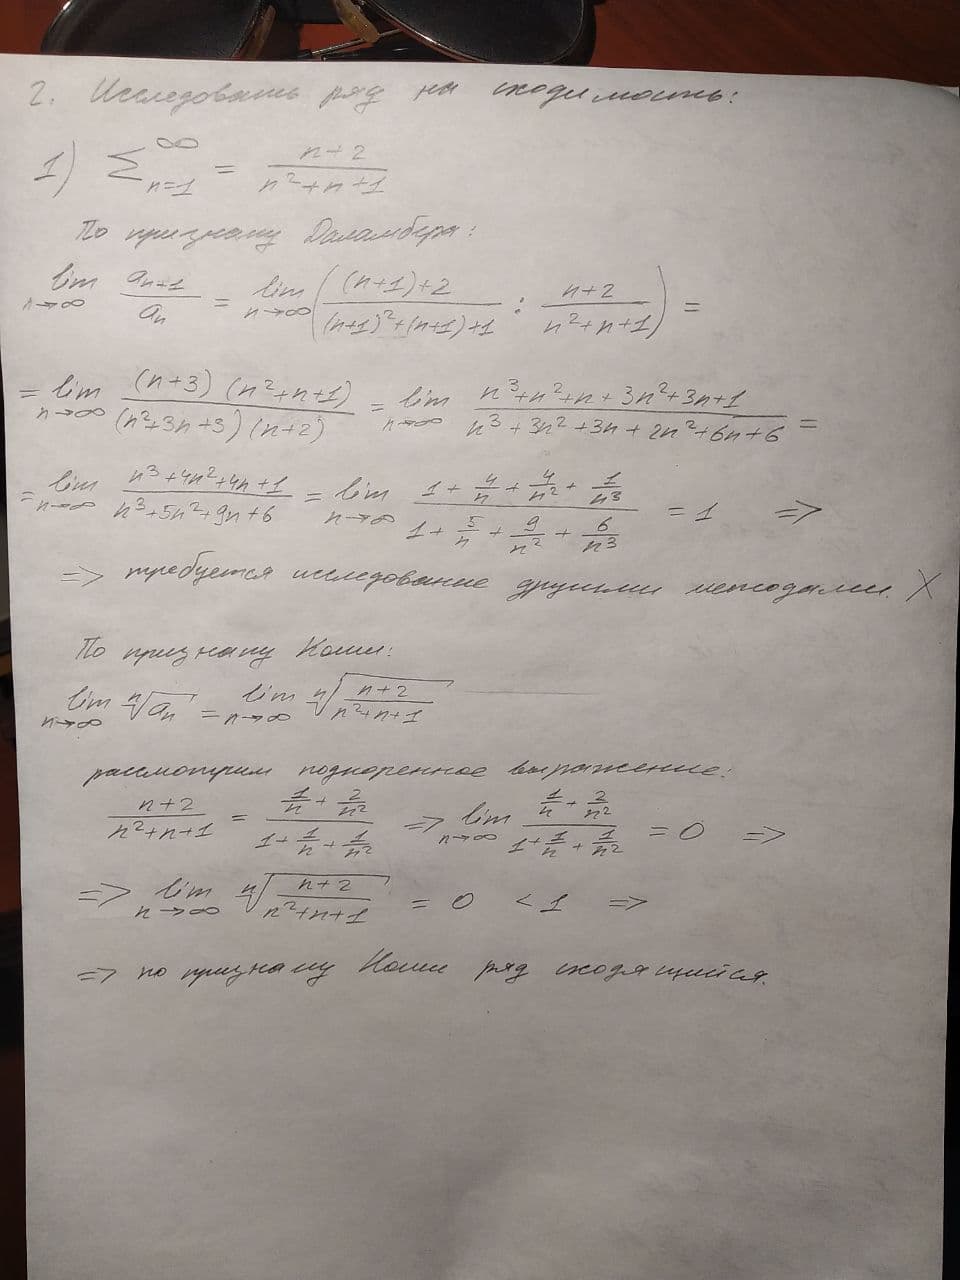 2. Исследовать ряд на сходимость:
1) ∑_{n=1}^{∞} = (n+2)/(n²+n+1)
По признаку Даламбера:
lim_{n→∞} a_{n+1}/a_n = lim_{n→∞} ( ((n+1)+2)/((n+1)²+(n+1)+1) : (n+2)/(n²+n+1) ) =
= lim_{n→∞} ((n+3)(n²+n+1))/((n²+3n+3)(n+2)) = lim_{n→∞} (n³+n²+n+3n²+3n+1)/(n³+3n²+3n+2n²+6n+6) =
= lim_{n→∞} (n³+4n²+4n+1)/(n³+5n²+9n+6) = lim_{n→∞} (1+4/n+4/n²+1/n³)/(1+5/n+9/n²+6/n³) = 1 =>
=> требуется исследование другими методами. X
По признаку Коши:
lim_{n→∞} ⁿ√(a_n) = lim_{n→∞} ⁿ√((n+2)/(n²+n+1))
рассмотрим подкоренное выражение:
(n+2)/(n²+n+1) = (1/n+2/n²)/(1+1/n+1/n²) => lim_{n→∞} (1/n+2/n²)/(1+1/n+1/n²) = 0 =>
=> lim_{n→∞} ⁿ√((n+2)/(n²+n+1)) = 0 < 1 =>
=> по признаку Коши ряд сходящийся.